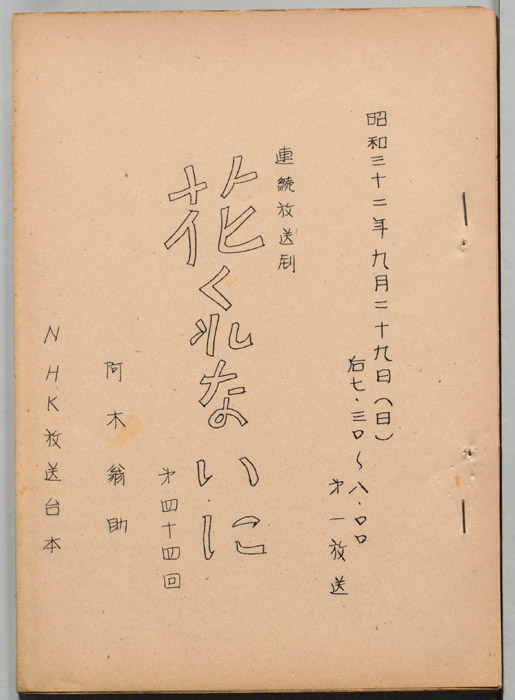 昭和三十二年九月二十九日（日）
后七・三〇～八・〇〇
第一放送
連続放送劇
花くれないに
第四十四回
阿木翁助
NHK放送台本